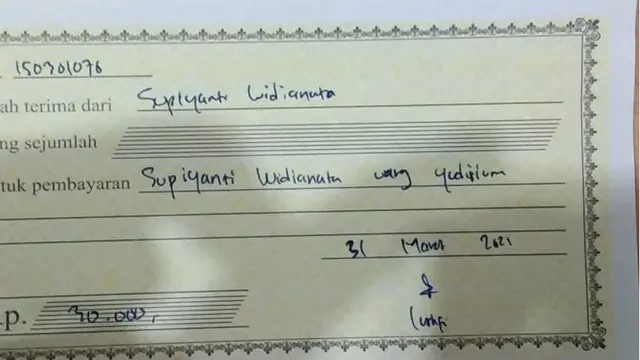 150301076
ah terima dari Supiyanti Widianata
ng sejumlah
tuk pembayaran Supiyanti Widianata uang yudisium
31 Maret 2021
.p. 30.000,